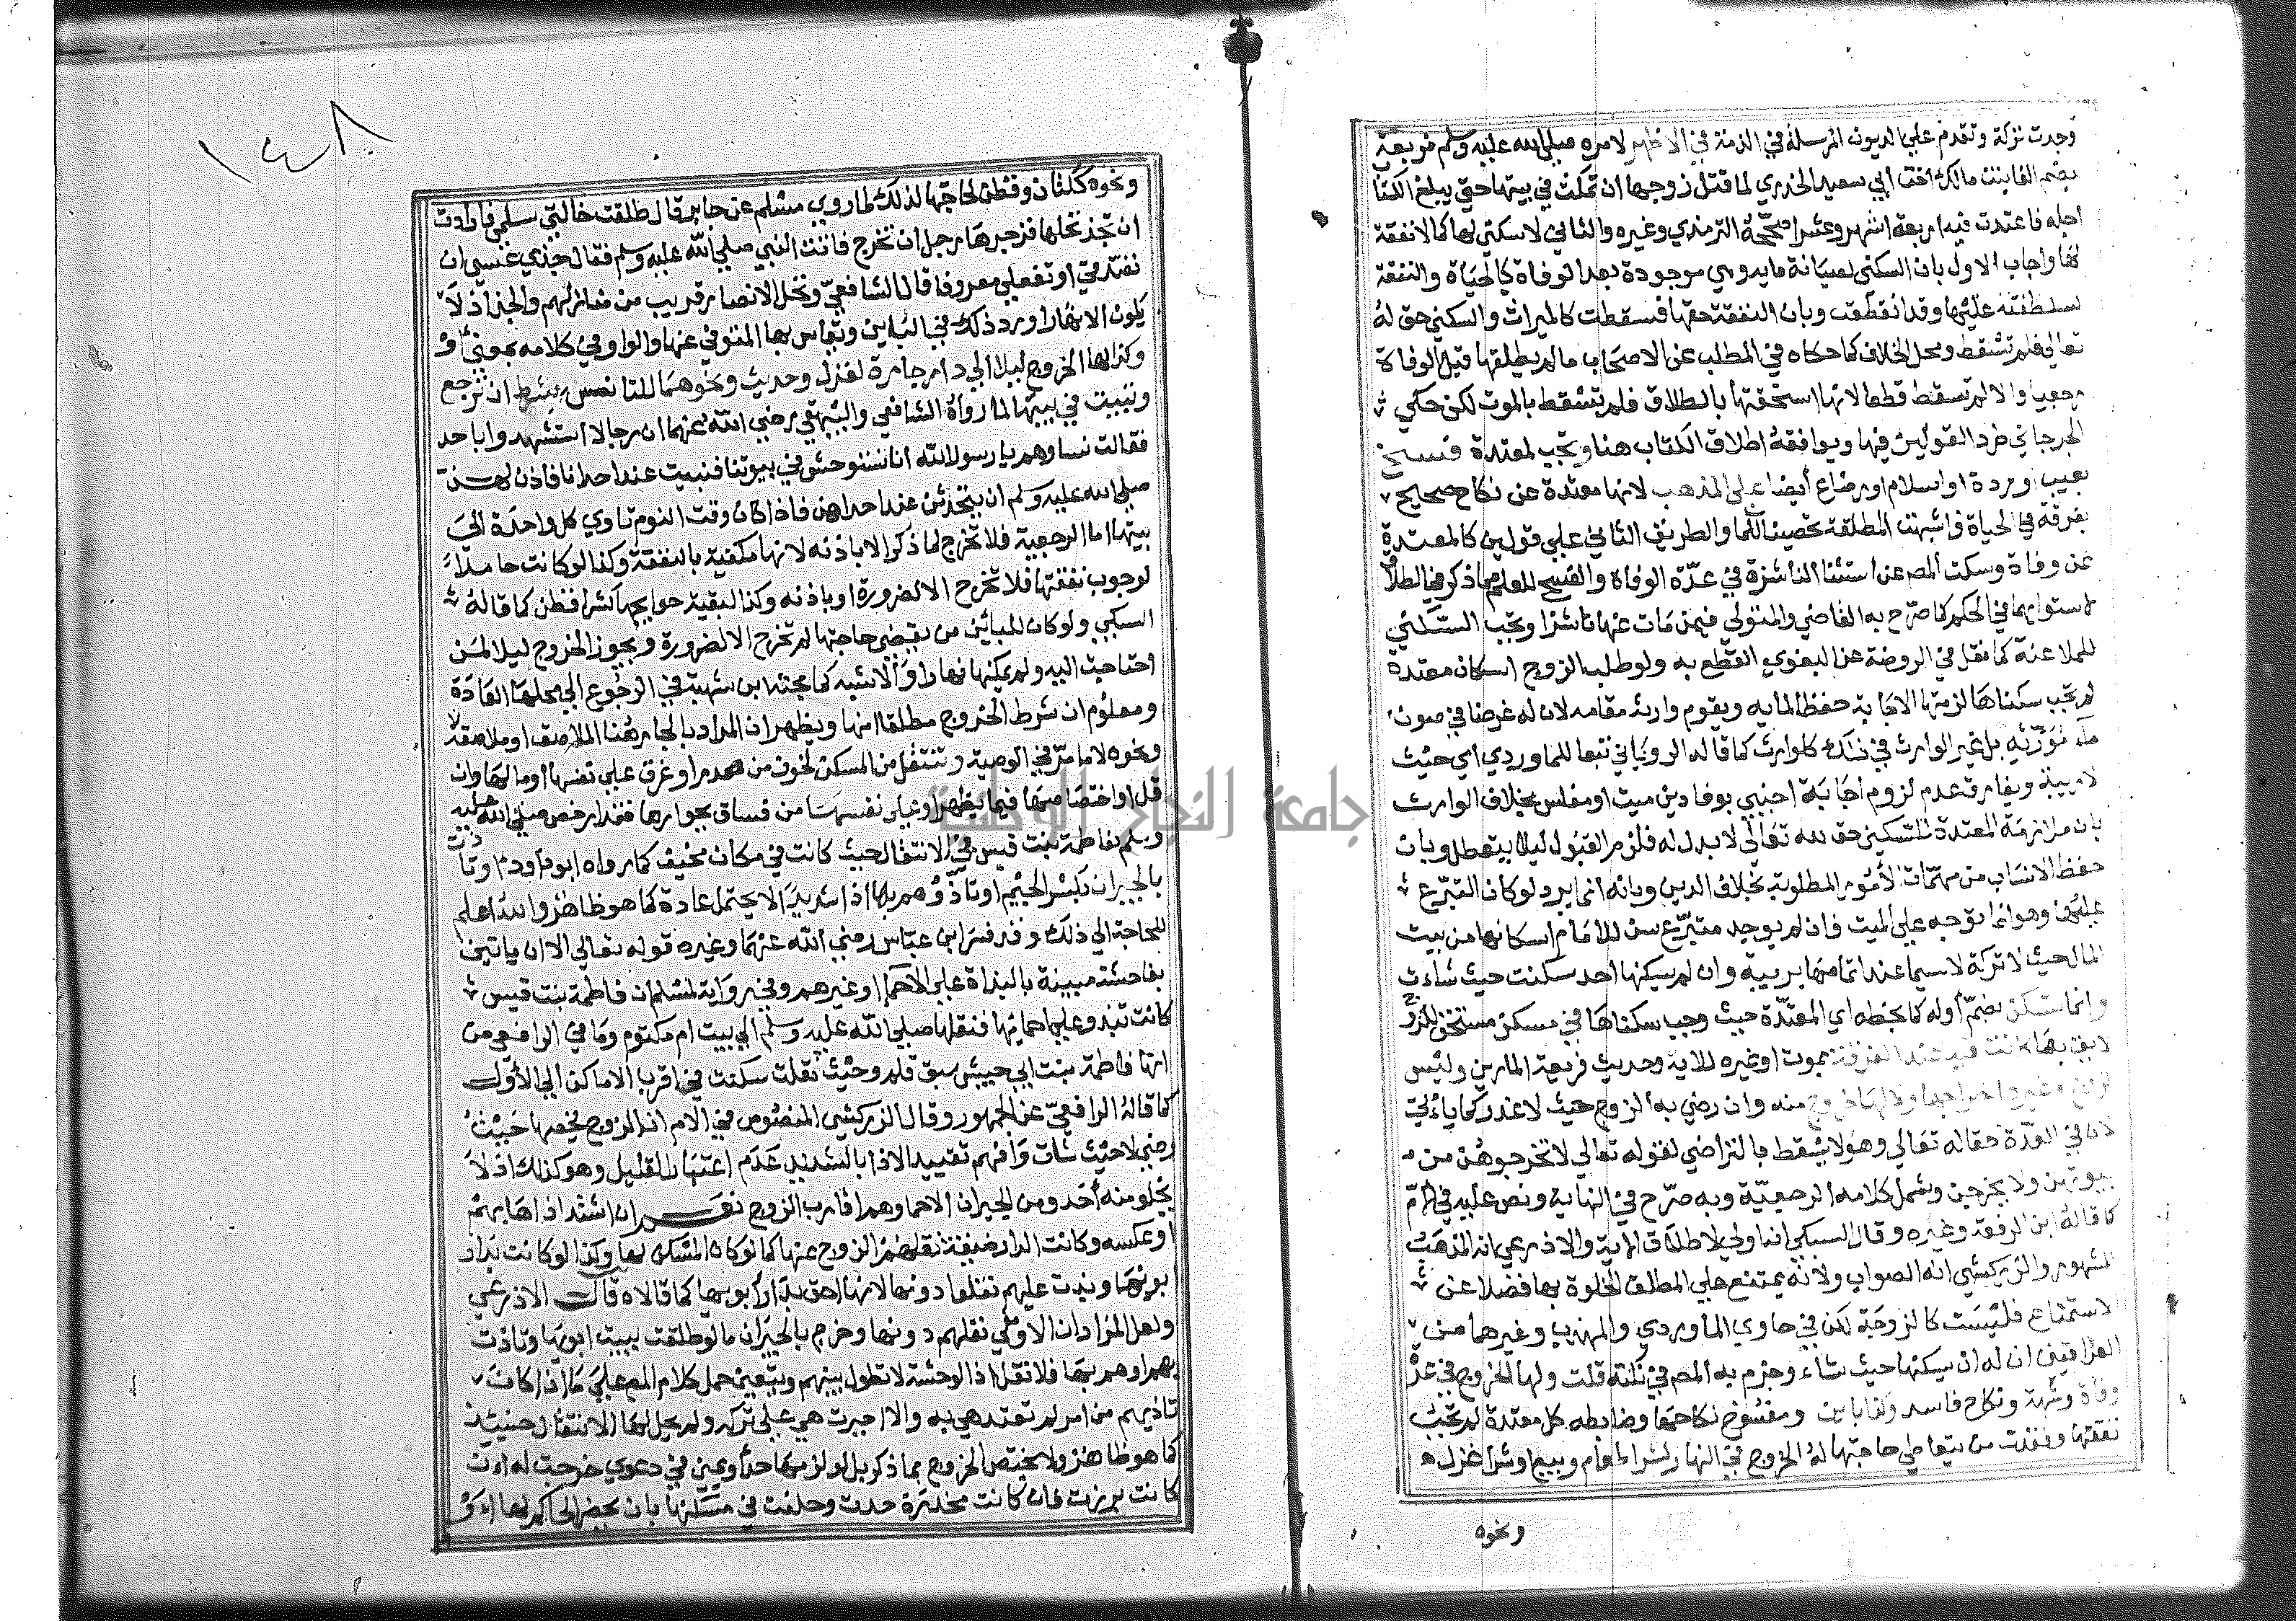 وجدت تركة وتقدم علي الديون المرسلة في الذمة في الاظهر لامره صلي الله عليه وسلم فريعة
بضم الفا بنت مالك اخت أبي سعيد الخدري لما قتل زوجها ان تمكث في بيتها حتي يبلغ الكتا
اجله فاعتدت فيه اربعة اشهر وعشرا صححه الترمذي وغيره والثاني لاسكني لها كما لانفقة
لها واجاب الاول بان السكني لصيانة مايه وهي موجودة بعد الوفاة كالحياة والنفقة
لسلطنته عليها وقد انقطعت وبان النفقة حقها فسقطت كالميراث والسكني حق له
تعالي فلم تسقط ومحل الخلاف كما حكاه في المطلب عن الاصحاب ما لم يطلقها قبل الوفاة
رجعيا والا لم تسقط قطعا لانها استحقتها بالطلاق فلم تسقط بالموت لكن حكي
الجرجاني طرد القولين فيها ويوافقه اطلاق الكتاب هنا وتجب لمعتدة فسخ
بعيب او ردة او اسلام او رضاع أيضا علي المذهب لانها معتدة عن نكاح صحيح
بفرقة في الحياة فاشبهت المطلقة تحصينا للما والطريق الثاني علي قولين كالمعتدة
عن وفاة وسكت المص عن استثنا الناشزة في عدة الوفاة والفسخ للعلم مما ذكره في الطلا
لاستوايهما في الحكم كما صرح به القاضي والمتولي فيمن مات عنها ناشزا وتجب السكني
للملاعنة كما نقل في الروضة عن البغوي القطع به ولو طلب الزوج اسكان معتدة
لم تجب سكناها لزمتها الاجابة حفظا لمايه ويقوم وارثه مقامه لان له غرضا في صون
ماء مورثه بل غير الوارث في ذلك كالوارث كما قاله الروياني تبعا للماوردي اي حيث
لا ريبة ويفارق عدم لزوم اجابة اجنبي بوفا دين ميت او مفلس بخلاف الوارث
بان ملازمة المعتدة للسكني حق لله تعالي لا بدل له فلزم القبول ليلا يتعطل وبان
حفظ الانساب من مهمات الأمور المطلوبة بخلاف الدين وبانه انما يرد لو كان التبرع
عليها وهو انما توجه علي الميت فان لم يوجد متبرع سن للامام اسكانها من بيت
المال حيث لا تركة لاسيما عند اتهامها بريبة وان لم يسكنها احد سكنت حيث شاءت
وانما تسكن بضم أوله كما بخطه اي المعتدة حيث وجب سكناها في مسكن مستحق للزوج
لايق بها كانت فيه عند الفرقة بموت او غيره للاية وحديث فريعة المارين وليس
لزوج وغيره اخراجها ولا لها خروج منه وان رضي به الزوج حيث لا عذر كما ياتي
لان في العدة حقا له تعالي وهو لا يسقط بالتراضي لقوله تعالي لا تخرجوهن من
بيوتهن ولا يخرجن وشمل كلامه الرجعية وبه صرح في النهاية ونص عليه في الام
كما قاله ابن الرفعة وغيره وقال السبكي انه اولي لاطلاق الاية والاذرعي انه المذهب
المشهور والزركشي انه الصواب ولانه يمتنع علي المطلق الخلوة بها فضلا عن
الاستمتاع فليست كالزوجة لكن في حاوي الماوردي والمهذب وغيرهما من
العراقيين ان له ان يسكنها حيث شاء وجزم به المص في نكته قلت ولها الخروج في عدة
وفاة وشبهة ونكاح فاسد وكذا باين ومفسوخ نكاحها وضابطه كل معتدة لم تجب
نفقتها وفقدت من يتعاطي حاجتها له الخروج في النهار لشرا طعام وبيع او شرا غزل
ونحوه
١٤٨
ونحوه كلثان وقطن لحاجتها لذلك لما روي مسلم عن جابر قال طلقت خالتي سلمي فارادت
ان تجذ نخلها فزجرها رجل ان تخرج فاتت النبي صلي الله عليه وسلم فقال جذي عسي ان
تتصدقي او تفعلي معروفا قال الشافعي ونخل الانصار قريب من منازلهم والجذاذ لا
يكون الا نهارا ورد ذلك في الباين وتقاس بها المتوفي عنها والواو في كلامه بمعني او
وكذا لها الخروج ليلا الي دار جارة لغزل وحديث ونحوهما للتانس بشرط ان ترجع
وتبيت في بيتها لما رواه الشافعي والبيهقي رضي الله عنهما ان رجالا استشهدوا باحد
فقالت نساوهم يا رسول الله انا نستوحش في بيوتنا فنبيت عند احدانا فاذن لهن
صلي الله عليه وسلم ان يتحدثن عند احداهن فاذا كان وقت النوم تاوي كل واحدة الي
بيتها اما الرجعية فلا تخرج لما ذكر الا باذنه لانها مكفية بالنفقة وكذا لو كانت حاملا
لوجوب نفقتها فلا تخرج الا لضرورة او باذنه وكذا لبقية حوايجها كشرا قطن كما قاله
السبكي ولو كان للباين من يقضي حاجتها لم تخرج الا لضرورة ويجوز الخروج ليلا لمن
احتاجت اليه ولم يمكنها نهارا والاشبه كما بحثه ابن شهبة في الرجوع الي محلها العادة
ومعلوم ان شرط الخروج مطلقا امنها ويظهر ان المراد بالجار هنا الملاصق او ملاصقه
ونحوه لا ما مر في الوصية وتنتقل من المسكن لخوف من هدم او غرق علي نفسها او مالها وان
قل او اختصاصها فيما يظهر او علي نفسها من فساق بجوارها فقد ارخص صلي الله عليه
وسلم لفاطمة بنت قيس في الانتقال حيث كانت في مكان مخيف كما رواه ابو داود او تاذت
بالجيران بكسر الجيم او تاذوا هم بها اذا شديدا لا يحتمل عادة كما هو ظاهر والله اعلم
للحاجة الي ذلك وقد فسر ابن عباس رضي الله عنهما وغيره قوله تعالي الا ان ياتين
بفاحشة مبينة بالبذاة علي الاحما او غيرهم وفي رواية لمسلم ان فاطمة بنت قيس
كانت تبذو علي احمائها فنقلها صلي الله عليه وسلم الي بيت ام مكتوم وما في الرافعي من
انها فاطمة بنت ابي حبيش سبق قلم وحيث نقلت سكنت في اقرب الاماكن الي الأول
كما قاله الرافعي عن الجمهور وقال الزركشي المنصوص في الام ان الزوج يحصنها حيث
رضي لا حيث شات وافهم تقييد الاذا بالشديد عدم اعتبار القليل وهو كذلك اذ لا
يخلو منه أحد ومن الجيران الاحما وهم اقارب الزوج نعم ان اشتد اذاها بهم
او عكسه وكانت الدار ضيقة نقلهم الزوج عنها كما لو كان المسكن لها وكذا لو كانت بدار
بويها وبذت عليهم نقلوا دونها لانها احق بدار أبويها كما قالاه قال الاذرعي
ولعل المراد ان الاولي نقلهم دونها وخرج بالجيران ما لو طلقت ببيت ابويها وتاذت
بهم او هم بها فلا نقل اذ الوحشة لا تطول بينهم ويتعين حمل كلام المص علي ما اذا كان
تاذيهم من امر لم تتعد هي به والا اجبرت هي علي تركه ولم يحل لها الانتقال حينيذ
كما هو ظاهر ولا يختص الخروج بما ذكر بل لو لزمها حد أو يمين في دعوي خرجت له ان
كانت برزت فان كانت مخدرة حدت وحلفت في مسكنها بان يحضر الحاكم لها او